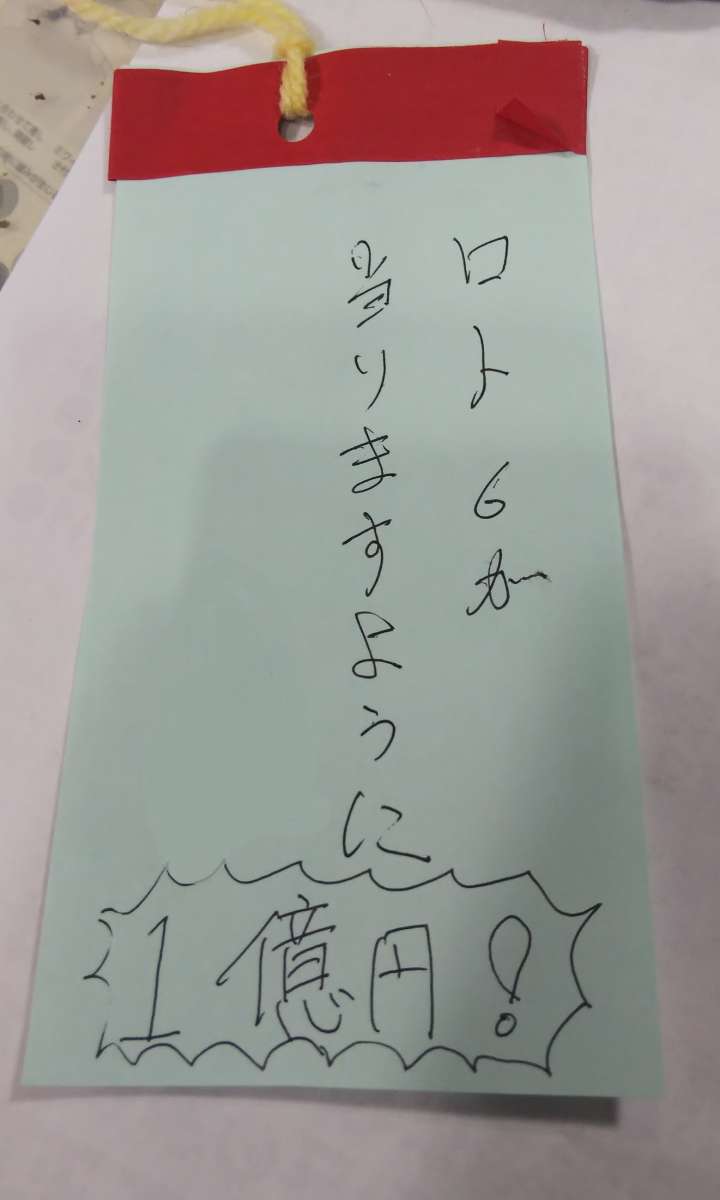 ロト6が
当りますように
1億円!